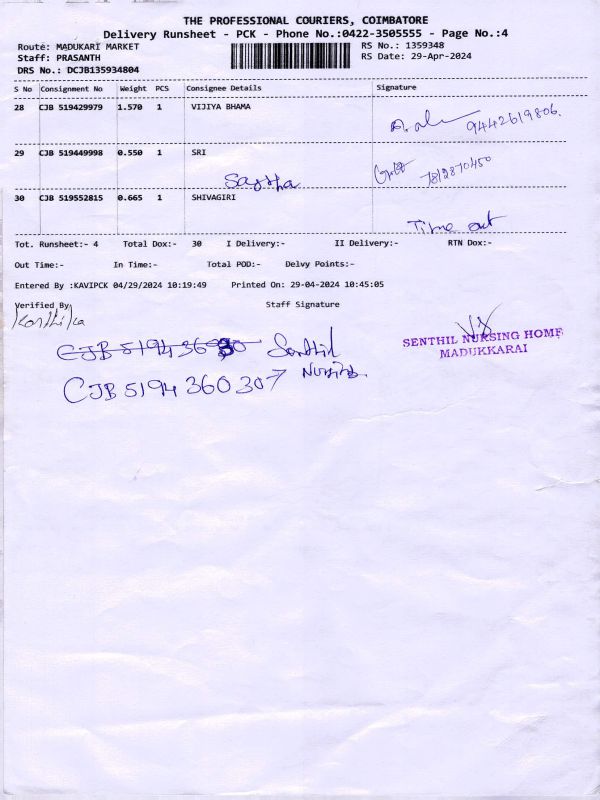 THE PROFESSIONAL COURIERS, COIMBATORE
Delivery Runsheet - PCK - Phone No.:0422-3505555 - Page No.:4
Route: MADUKARI MARKET RS No.: 1359348
Staff: PRASANTH RS Date: 29-Apr-2024
DRS No.: DCJB135934804
S No Consignment No Weight PCS Consignee Details Signature
28 CJB 519429979 1.570 1 VIJIYA BHAMA
9442619806.
29 CJB 519449998 0.550 1 SRI
7819870450
30 CJB 519552815 0.665 1 SHIVAGIRI
Time out
Tot. Runsheet:- 4 Total Dox:- 30 I Delivery:- II Delivery:- RTN Dox:-
Out Time:- In Time:- Total POD:- Delvy Points:-
Entered By :KAVIPCK 04/29/2024 10:19:49 Printed On: 29-04-2024 10:45:05
Verified By Staff Signature
Karthika
SENTHIL NURSING HOME
MADUKKARAI
Senthil
CJB 5194 360 307 Nursing.